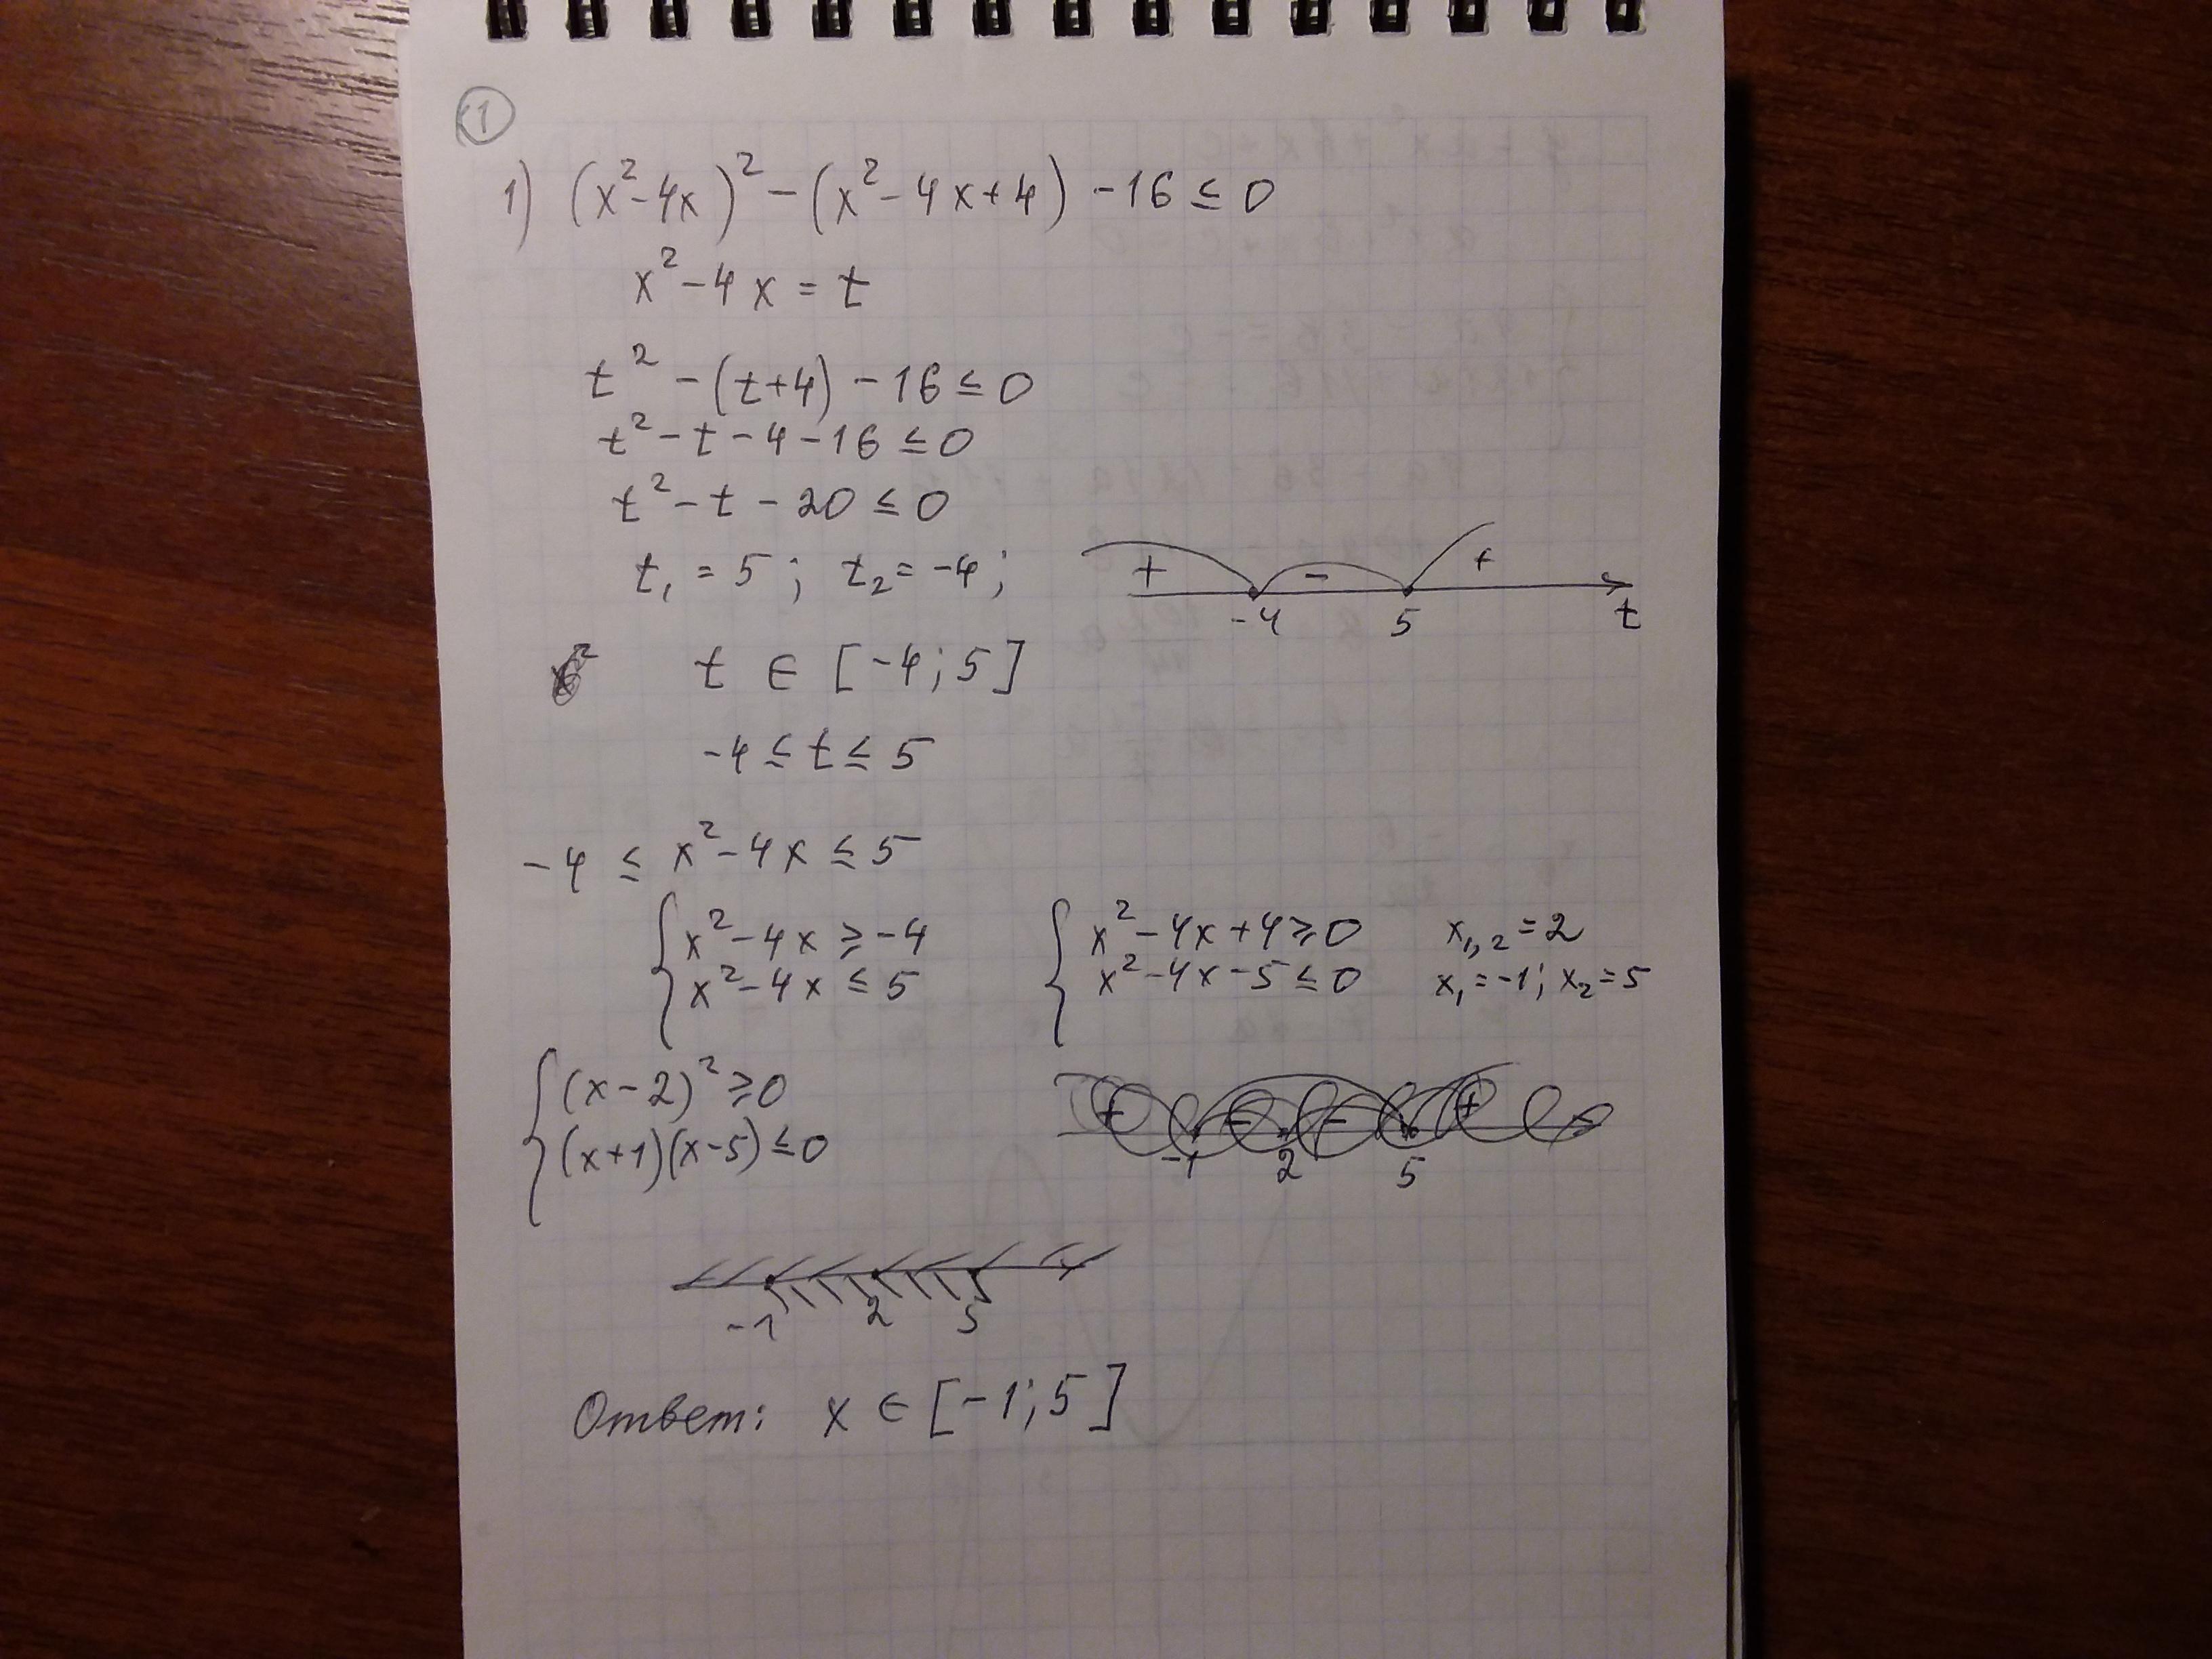 1
1) (x²-4x)² - (x²-4x+4) -16 ≤ 0
x²-4x = t
t² - (t+4) - 16 ≤ 0
t² - t - 4 - 16 ≤ 0
t² - t - 20 ≤ 0
t₁ = 5; t₂ = -4;
+ - +
-4 5 t
t ∈ [-4; 5]
-4 ≤ t ≤ 5
-4 ≤ x²-4x ≤ 5
x²-4x ≥ -4
x²-4x ≤ 5
x²-4x+4 ≥ 0 x₁,₂ = 2
x²-4x-5 ≤ 0 x₁ = -1; x₂ = 5
(x-2)² ≥ 0
(x+1)(x-5) ≤ 0
+ - - +
-1 2 5
-1 2 5
Ответ: x ∈ [-1; 5]